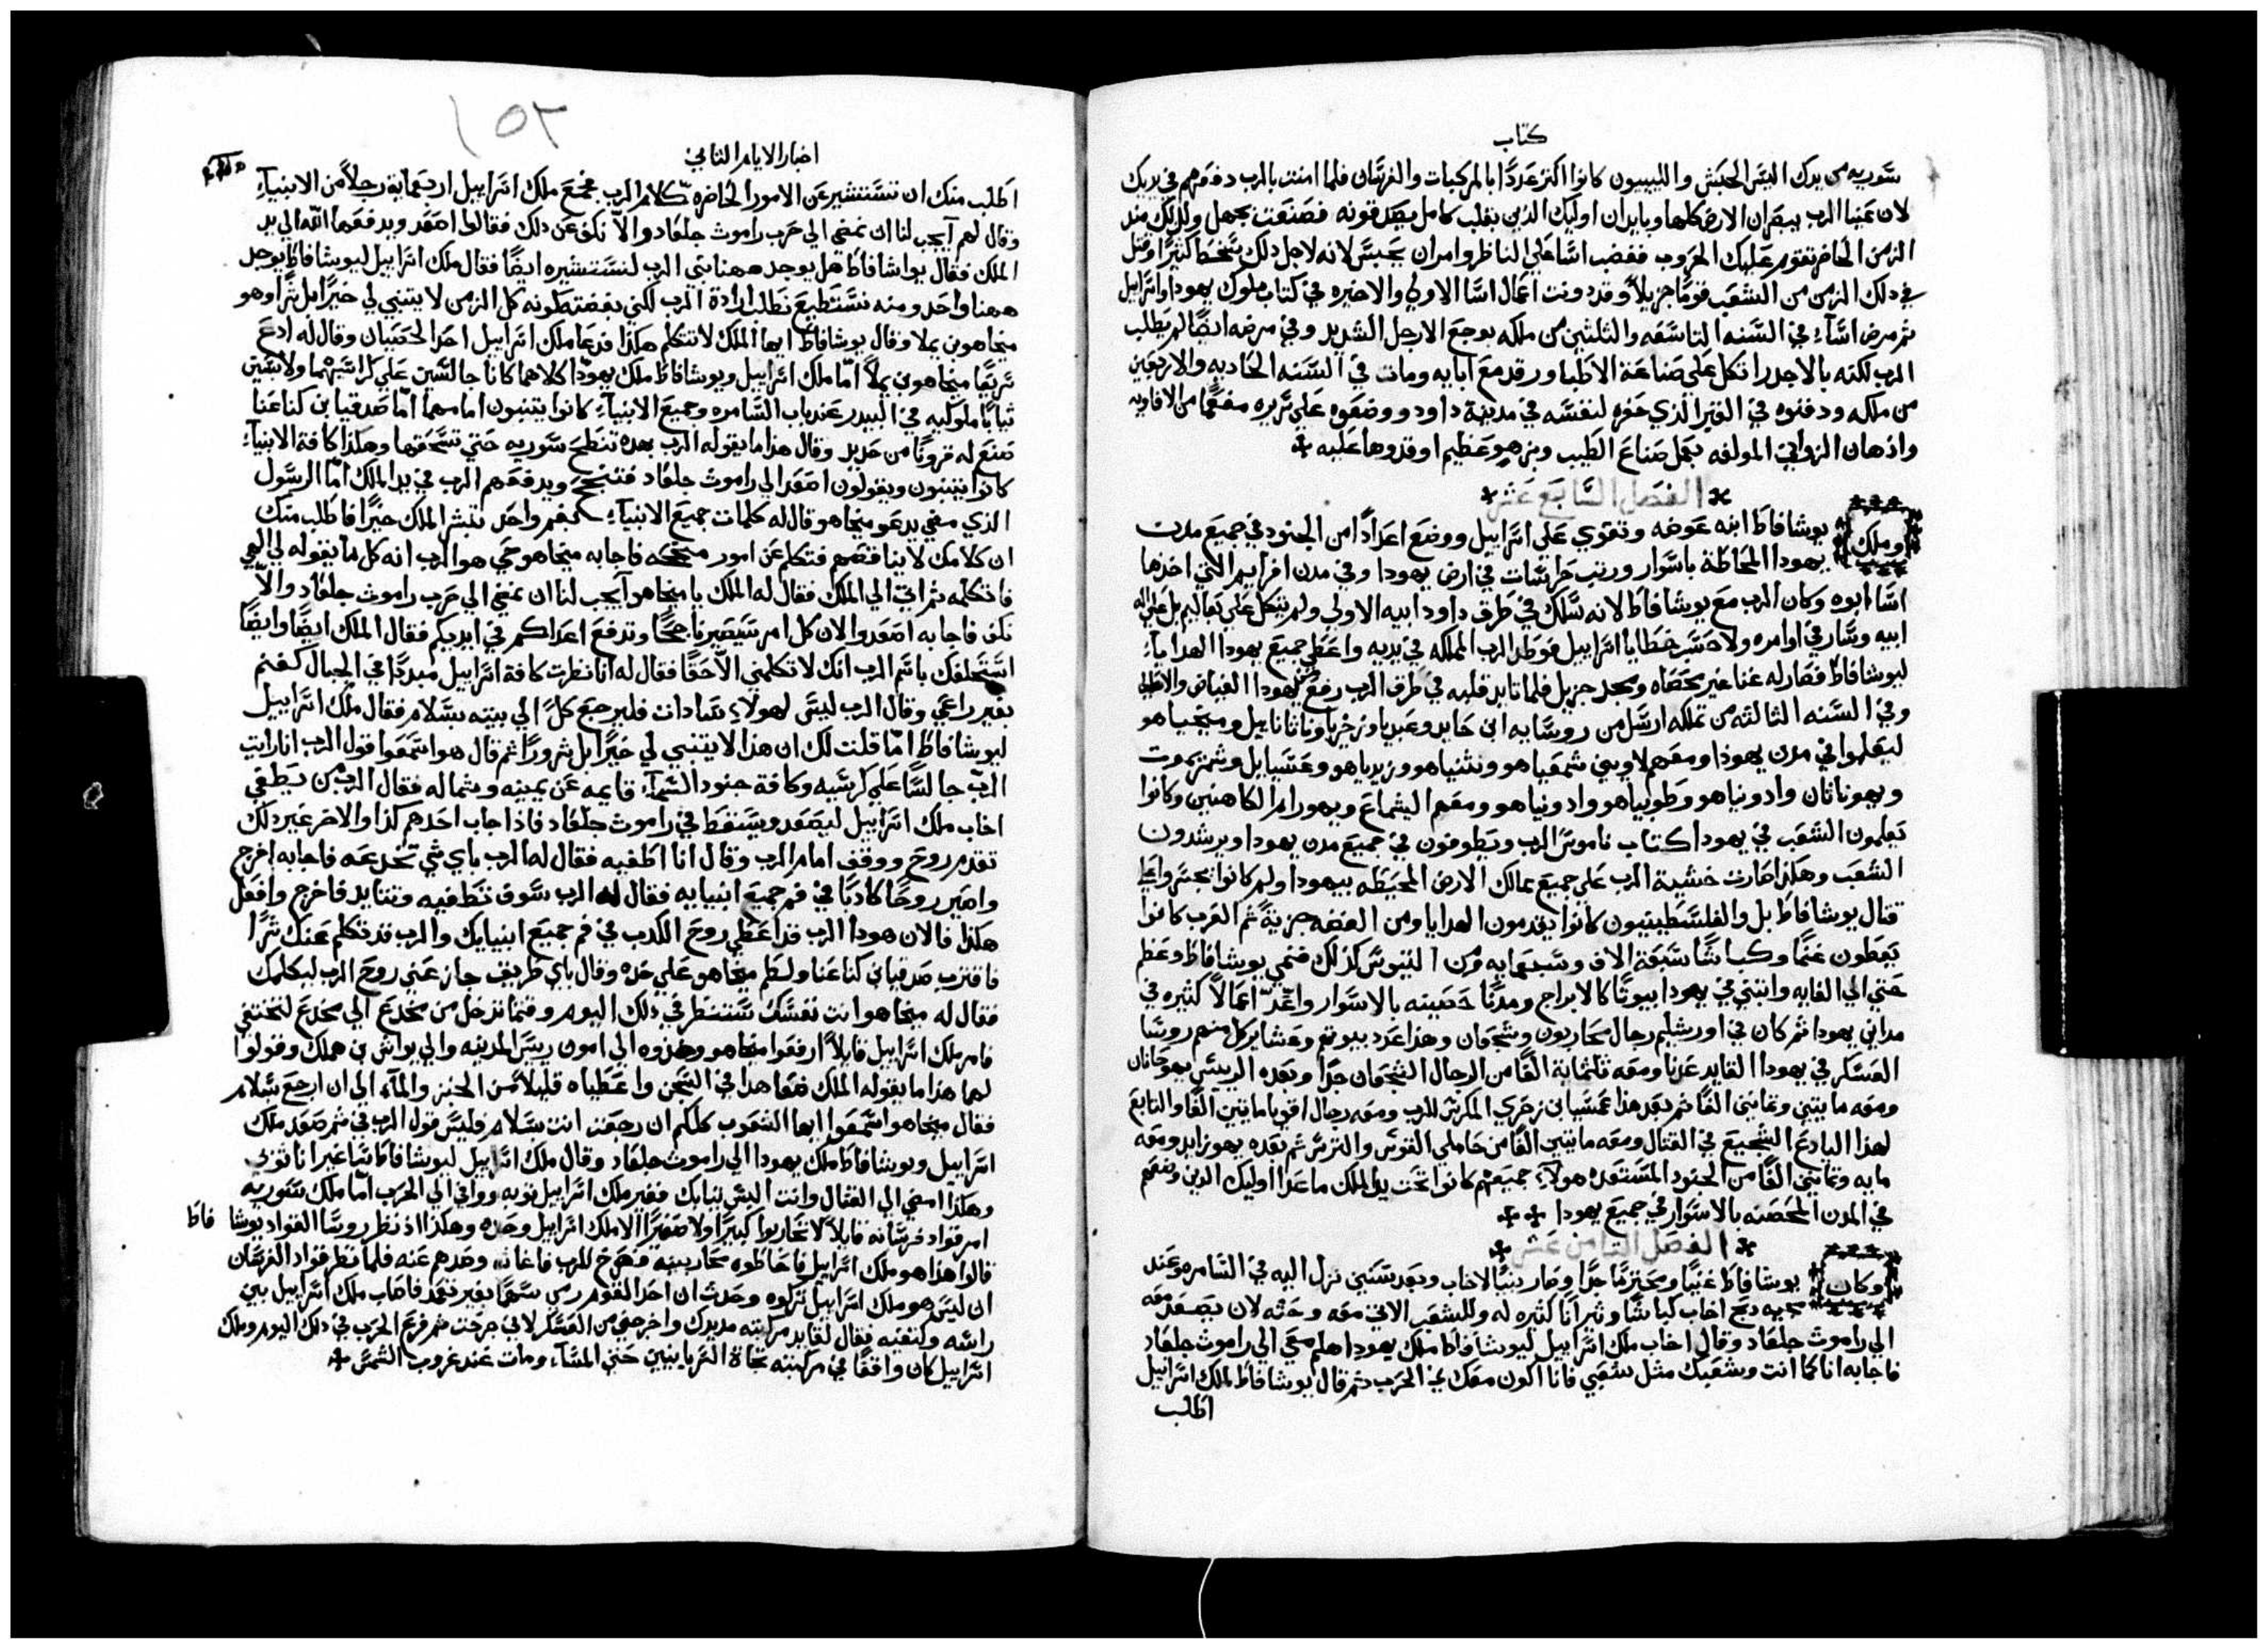 كتاب
سوريه من يدك اليس الحبش والليبيون كانوا اكثر عددًا بالمركبات والفرسان فلما امنت بالرب دفعهم في يديك
لان عينيا الرب يبصران الارض كلها ويايدان اوليك الذين بقلب كامل يصدقونه فصنعت بجهل ولذلك منذ
الزمن الحاضر تقوم عليك الحروب فغضب اسا علي الناظر وامر ان يحبس لانه لاجل ذلك سخط كثيرًا وقتل
في ذلك الزمن من الشعب قومًا جزيلاً وقد دونت اعمال اسا الاولي والاخيره في كتاب ملوك يهودا واسراييل
ثم مرض اساء في السنه التاسعه والثلثين من ملكه بوجع الارجل الشديد وفي مرضه ايضًا لم يطلب
الرب لكنه بالاجدر اتكل علي صناعة الاطبا ورقد مع ابايه ومات في السنه الحاديه والاربعين
من ملكه ودفنوه في القبر الذي حفره لنفسه في مدينة داود ووضعوه علي سريره مفعمًا من الافاويه
واذهان الزواني المولفه بعمل صناع الطيب وبزهو عظيم اوقدوها عليه
الفصل السابع عشر
وملك يوشافاط ابنه عوضه وتقوي علي اسراييل ووضع اعدادًا من الجنود في جميع مدن
يهودا المحاطة باسوار ورتب حراسات في ارض يهودا وفي مدن افرايم التي اخذها
اسا ابوه وكان الرب مع يوشافاط لانه سلك في طرق داود ابيه الاولي ولم يتكل علي بعاليم بل علي اله
ابيه وسار في اوامره ولا حسب خطايا اسراييل فوطد الرب المملكه في يديه واعطي جميع يهودا الهدايا
ليوشافاط فصار له غنا غير محصاه ومجد جزيل فلما تايد قلبه في طرق الرب رفع من يهودا الغياض والاعالي
وفي السنه الثالثه من تملكه ارسل من روسايه ابن حايد وعبديا وزخريا وناثانابيل وميخياهو
ليعلموا في مدن يهودا ومعهم لاويين شمعياهو ونثنياهو وزبدياهو وعسيابل وشمريموت
ويهوناثان وادونياهو وطوبياهو وادونياهو ومعهم اليشماع ويهورام الكاهنين وكانوا
يعلمون الشعب في يهودا كتاب ناموس الرب ويطوفون في جميع مدن يهودا ويرشدون
الشعب وهكذا صارت خشية الرب علي جميع ممالك الارض المحيطه بيهودا ولم كانوا يجسروا علي
قتال يوشافاط بل والفلسطينيون كانوا يقدمون الهدايا ومن الفضه جزيةً ثم العرب كانوا
يعطون غنمًا وكباشًا سبعة الاف وسبعمايه ومن التيوس كذلك فنمي يوشافاط وعظم
حتي الي الغايه وابتني في يهودا بيوتًا كالابراج ومدنًا حصينه بالاسوار واعد اعمالاً كثيره في
مداين يهودا ثم كان في اورشليم رجال محاربون وشجعان وهذا عدد بيوتهم وعشاير كل منهم روسا
العسكر في يهودا القايد عدنا ومعه ثلثماية الفًا من الرجال الشجعان جدًا وبعده الرييس يهوحانان
ومعه مايتين وثمانين الفًا ثم بعد هذا عمسيا بن زخري المكرس للرب ومعه رجال اقويا مايتين الفًا والتابع
لهذا اليادع الشجيع في القتال ومعه مايتين الفًا من حاملي القوس والترس ثم بعده يهوزابد ومعه
مايه وثمانين الفًا من الجنود المستعده هولاء جميعهم كانوا تحت يد الملك ماعدا اوليك الذين وضعهم
في المدن المحصنه بالاسوار في جميع يهودا
الفصل الثامن عشر
وكان يوشافاط غنيًا ومحترمًا جدًا وصار نسيبًا لاخاب وبعد سنين نزل اليه في السامره وعند
مجيه دبح اخاب كباشًا وثيرانًا كثيره له وللشعب الاتي معه وحثه لان يصعد معه
الي راموث جلعاد وقال اخاب ملك اسراييل ليوشافاط ملك يهودا هلم معي الي راموث جلعاد
فاجابه انا كما انت وشعبك مثل شعبي فانا اكون معك في الحرب ثم قال يوشافاط لملك اسراييل
اطلب
١٥٢
اخبار الايام الثاني
اطلب منك ان تستشير عن الامور الحاضره كلام الرب فجمع ملك اسراييل اربعماية رجلاً من الانبياء
وقال لهم ايجب لنا ان نمضي الي حرب راموث جلعاد والا نكف عن ذلك فقالوا اصعد ويدفعها الله الي يد
الملك فقال يواشافاط هل يوجد ههنا نبي الرب لنستشيره ايضًا فقال ملك اسراييل ليوشافاط يوجد
ههنا واحد ومنه نستطيع نطلب ارادة الرب لكني بغضته لكونه كل الزمن لا يتنبي لي خيرًا بل شرًا وهو
ميخاهو بن يملا وقال يوشافاط ايها الملك لا تتكلم هكذا فدعا ملك اسراييل احد الخصيان وقال له ادع
سريعًا ميخاهو بن يملا اما ملك اسراييل ويوشافاط ملك يهودا كلاهما كانا جالسين علي كراسيهما ولابسين
ثيابًا ملوكيه في البيدر عند باب السامره وجميع الانبياء كانوا يتنبون امامهما اما صدقيا بن كناعنا
صنع له قرونًا من حديد وقال هذا ما يقوله الرب بهده تنطح سوريه حتي تسحقها وهكذا كافة الانبياء
كانوا يتنبون ويقولون اصعد الي راموث جلعاد فتنجح ويدفعهم الرب في يد الملك اما الرسول
الذي مضي يدعو ميخاهو قال له كلمات جميع الانبياء كبفم واحد تبشر الملك خيرًا فاطلب منك
ان كلامك لا يناقضهم فتكلم عن امور منجحه فاجابه ميخاهو حي هو الرب انه كل ما يقوله لي الهي
فاتكلمه ثم اتي الي الملك فقال له الملك يا ميخاهو ايجب لنا ان نمضي الي حرب راموث جلعاد والا
نكف فاجابه اصعدوا لان كل امر سيصير ناجحًا وتدفع اعداكم في ايديكم فقال الملك ايضًا وايضًا
استحلفك باسم الرب انك لا تكلمني الا حقًا فقال له انا نظرت كافة اسراييل مبددًا في الجبال كغنم
بغير راعي وقال الرب ليس لهولاء سادات فليرجع كل الي بيته بسلام فقال ملك اسراييل
ليوشافاط اما قلت لك ان هذا لا يتنبي لي خيرًا بل شرورًا ثم قال هو اسمعوا قول الرب انا رايت
الرب جالسًا علي كرسيه وكافة جنود السماء قايمه عن يمينه وشماله فقال الرب من يطغي
اخاب ملك اسراييل ليصعد ويسقط في راموث جلعاد فاذ اجاب احدهم كذا والاخر غير ذلك
تقدم روح ووقف امام الرب وقال انا اطغيه فقال له الرب باي شي تخدعه فاجابه اخرج
واصير روحًا كادبًا في فم جميع انبيايه فقال له الرب سوف تطغيه وتتايد فاخرج وافعل
هكذا فالان هودا الرب قد اعطي روح الكدب في فم جميع انبيايك والرب قد تكلم عنك شرًا
فاقترب صدقيا بن كناعنا ولطم ميخاهو علي خده وقال باي طريق جاز عني روح الرب ليكلمك
فقال له ميخاهو انت نفسك ستنظر في ذلك اليوم وقتما تدخل من مخدع الي مخدع لتختفي
فامر ملك اسراييل قايلاً ارفعوا ميخاهو وخذوه الي امون رييس المدينه والي يواش بن هملك وقولوا
لهما هذا ما يقوله الملك ضعا هدا في السجن واعطياه قليلاً من الخبز والماء الي ان ارجع بسلام
فقال ميخاهو اسمعوا ايها الشعوب كلكم ان رجعت انت بسلام فليس قول الرب في ثم صعد ملك
اسراييل ويوشافاط ملك يهودا الي راموث جلعاد وقال ملك اسراييل ليوشافاط سا غير انا ثوبي
وهكذا امضي الي القتال وانت البس ثيابك فغير ملك اسراييل ثوبه ووافي الي الحرب اما ملك سوريه
امر قواد فرسانه قايلاً لا تحاربوا كبيرًا ولا صغيرًا الا ملك اسراييل وحده وهكذا اذ نظر روسا القواد يوشا فاط
قالوا هذا هو ملك اسراييل فاحاطوه محاربينه فصرخ للرب فاغاثه وصدهم عنه فلما نظر قواد الفرسان
ان ليس هو ملك اسراييل تركوه وحدث ان احد القوم رمي سهمًا بغير تعمد فاصاب ملك اسراييل بين
راسه وكتفيه فقال لقايد مركبته مد يدك واخرجني من العسكر لاني جرحت ثم فرغ الحرب في ذلك اليوم وملك
اسراييل كان واقفًا في مركبته تجاة السريانيين حتي المساء ومات عند غروب الشمس